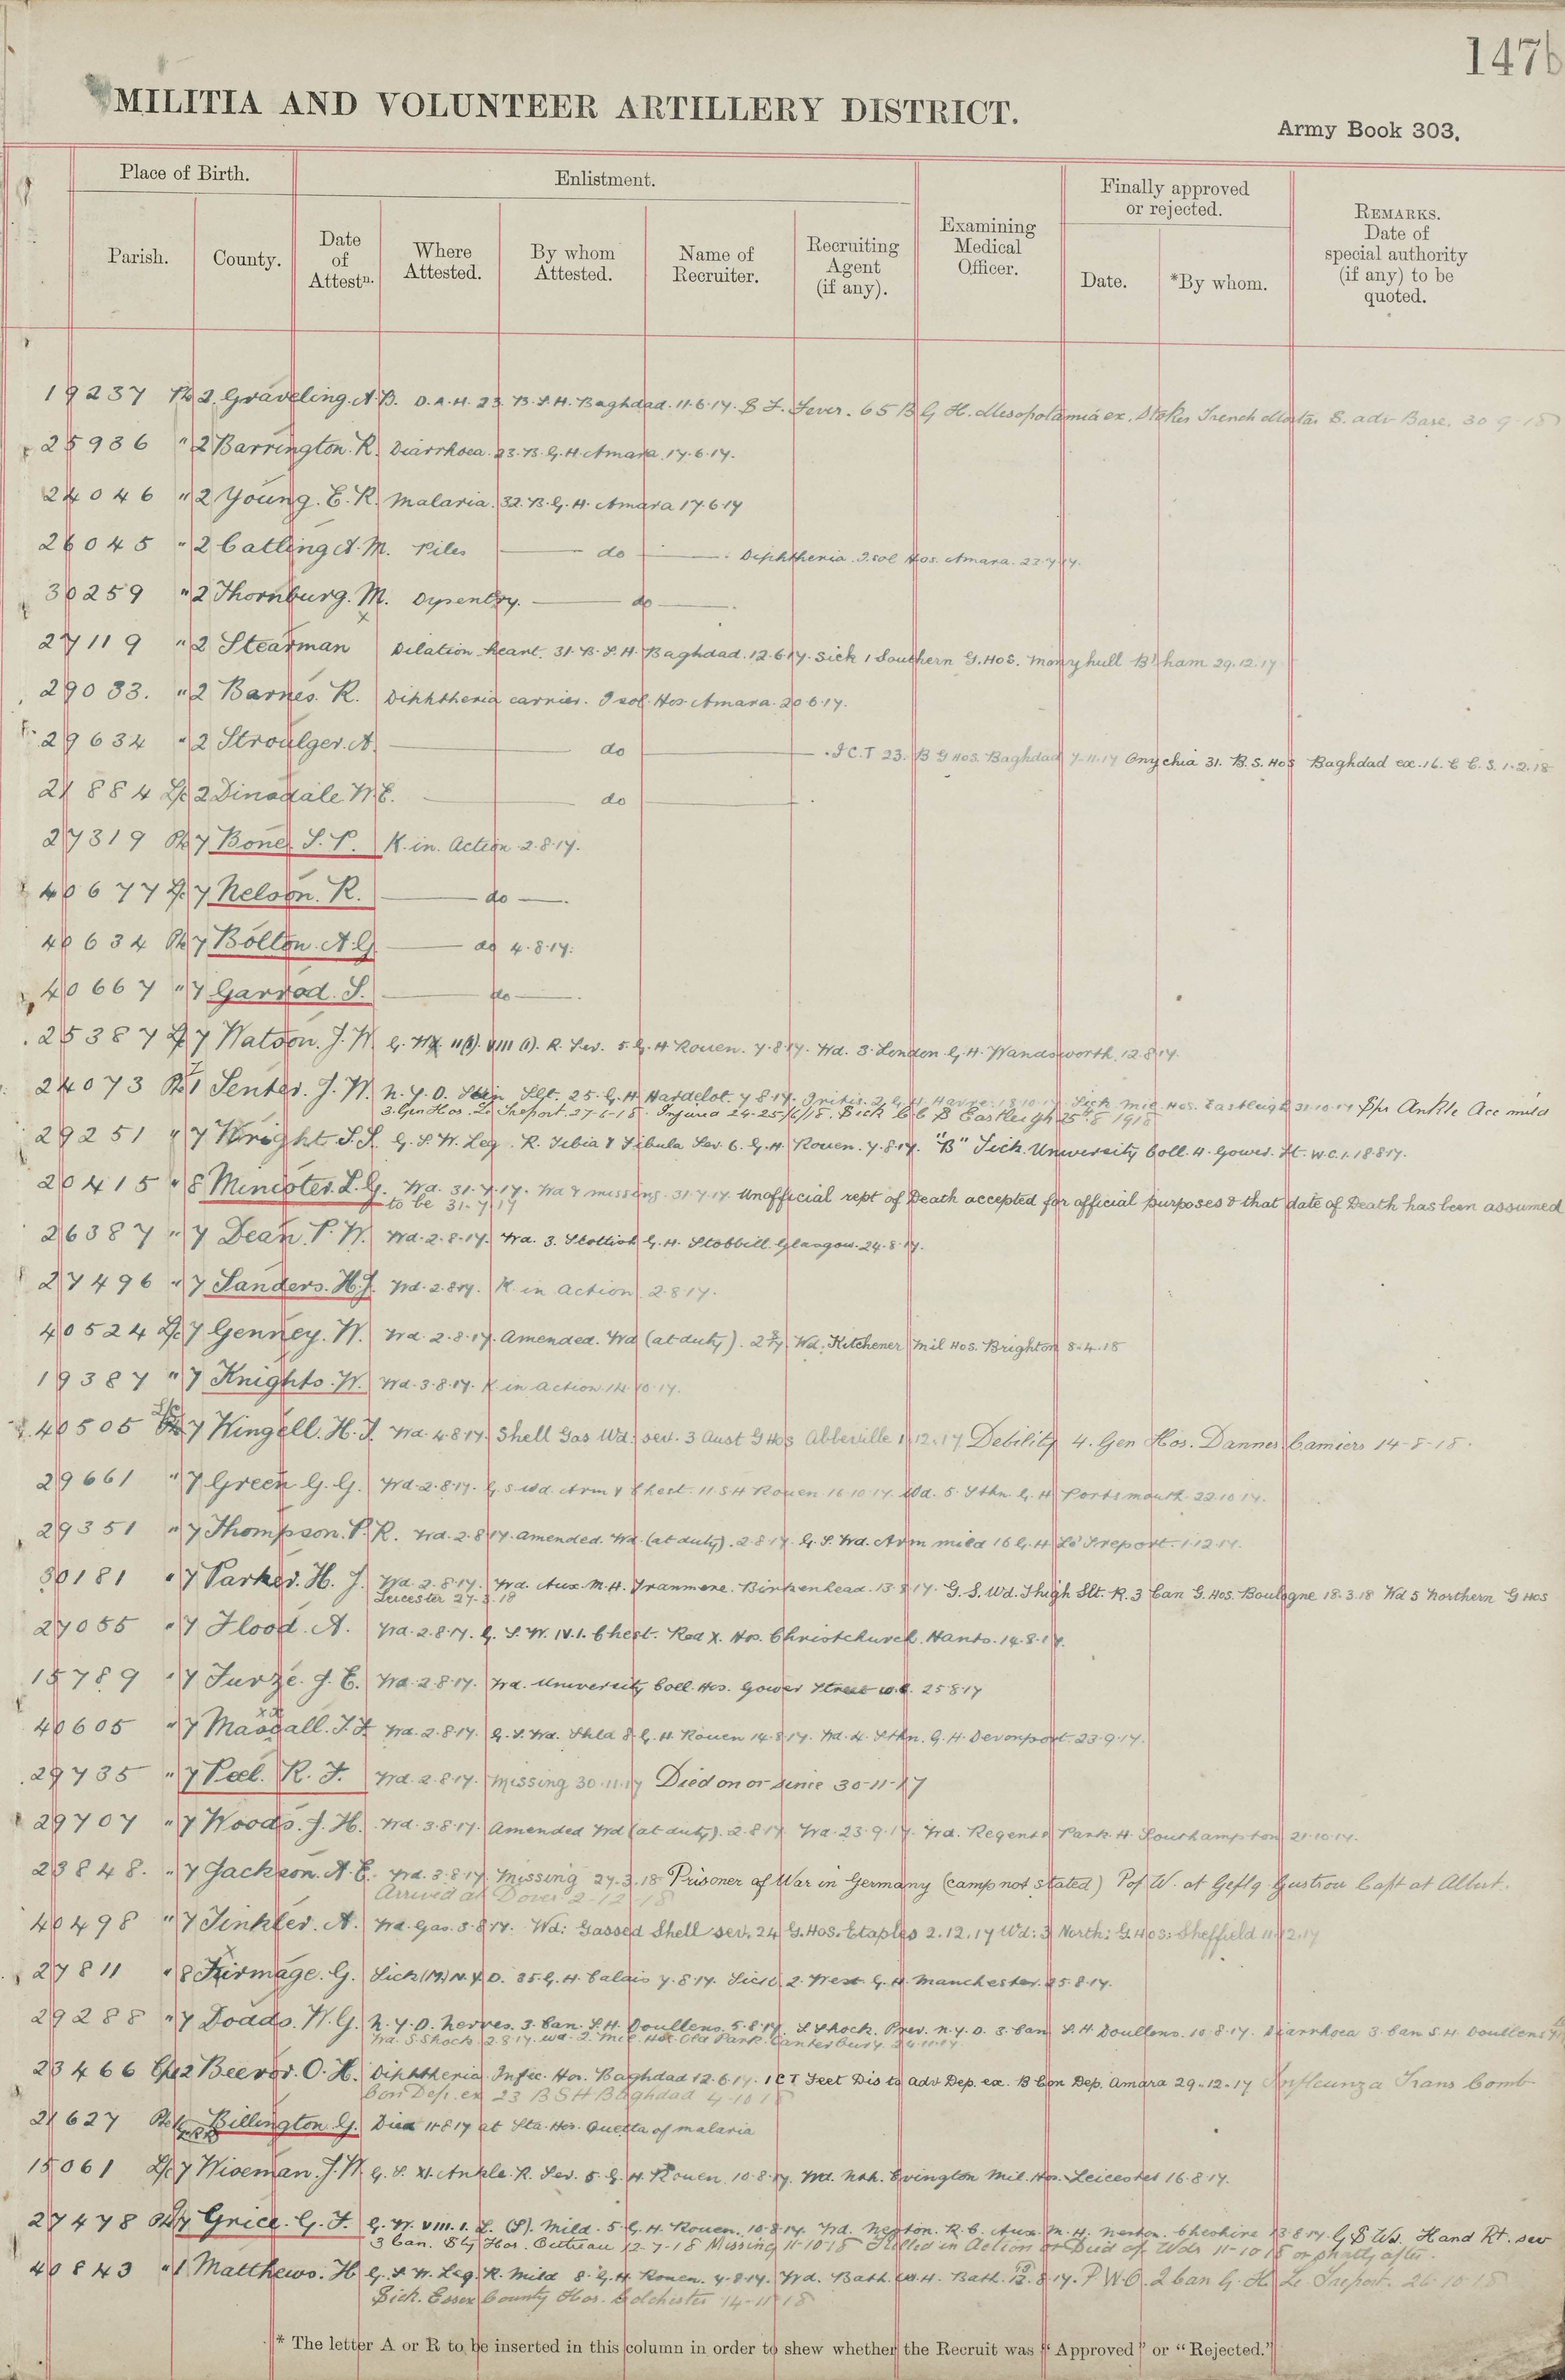 147b
MILITIA AND VOLUNTEER ARTILLERY DISTRICT.
Army Book 303.
Place of Birth.
Enlistment.
Finally approved
or rejected.
REMARKS.
Date of
special authority
(if any) to be
quoted.
Parish.
County.
Date
of
Attestn.
Where
Attested.
By whom
Attested.
Name of
Recruiter.
Recruiting
Agent
(if any).
Examining
Medical
Officer.
Date.
*By whom.
19237 Pte 2 Graveling. A.B. D.A.H. 23. B.S.H. Baghdad. 11.6.17. S.F. Fever. 65 B G H. Mesopotamia ex. Stokes Trench Mortar S. adv Base. 30 9 18
25936 " 2 Barrington. R. Diarrhoea. 23. B. G. H. Amara. 17.6.17.
24046 " 2 Young. E. R. Malaria. 32. B. G. H. Amara 17.6.17
26045 " 2 Catling A. M. Piles — do — Diphtheria. Isol Hos. Amara. 22.7.17.
30259 " 2 Thornburg. M. Dysentry. — do —
27119 " 2 Stearman Dilation heart. 31. B. S. H. Baghdad. 12.6.17. Sick 1 Southern G. Hos. Monyhull B'ham 29.12.17
29033. " 2 Barnes. R. Diphtheria carrier. Isol. Hos Amara. 20.6.17.
29634 " 2 Stroulger. A. — do — . I.C.T 23. B G Hos. Baghdad 7.11.17 Onychia 31. B. S. Hos Baghdad ex. 16. C C. S. 1.2.18
21884 L/c 2 Dinsdale W.E. — do —
27319 Pte 7 Bone. S. P. K. in. Action. 2.8.17.
40677 L/c 7 Nelson. R. — do —.
40634 Pte 7 Bolton. A G — do 4.8.17.
40667 " 7 Garrod. S. — do —.
25387 L/c 7 Watson. J. W. G. W. II (1). VIII (1). R. Sev. 5. G. H Rouen. 7.8.17. Wd. 3. London G. H. Wandsworth. 12.8.17.
24073 Pte 1 Senter. J. W. N. Y. D. Skin Slt. 25. G. H Hardelot. 7 8 17. 2 G H Havre. 18 10 17 Sick Mil Hos. Eastleigh 31.10.17 Spr Ankle Acc mild
3. Gen Hos. Le Treport. 27-6-18. Injured 24-25/6/18. Sick C C D Eastleigh 25th 8 1918
29251 " 7 Wright. S.S. G. S. W. Leg. R. Tibia & Fibula Sev. 6. G. H. Rouen. 7.8.17. "B" Sick. University Coll. H. Gower. St. W.C.1. 18.8.17.
20415 " 8 Minister. L. G. Wd. 31.7.17. Wd & missing. 31.7.17 Unofficial rept of Death accepted for official purposes & that date of Death has been assumed
to be 31.7.17
26387 " 7 Dean. P. W. Wd. 2.8.17. Wd. 3. Scottish G. H. Stobhill. Glasgow. 24.8.17.
27496 " 7 Sanders. H. J. Wd. 2.8.17. K. in action 2.8.17.
40524 L/c 7 Genney. W. Wd. 2.8.17. Amended. Wd (at duty). Wd. Kitchener Mil Hos. Brighton 8.4.18
19387 " 7 Knights. W. Wd. 3.8.17. K in action. 14.10.17.
40505 7 Wingell. H. J. Wd. 4.8.17. Shell Gas Wd: sev. 3 Aust G Hos Abbeville 1.12.17 Debility 4. Gen Hos. Dannes Camiers 14-8-18.
29661 " 7 Green G. G. Wd. 2.8.17. G S Wd. Arm & Chest. 11 S H Rouen 16.10.17. Wd. 5. Sthn G. H Portsmouth. 22.10.17.
29351 " 7 Thompson. P. R. Wd. 2.8.17. Amended. Wd (at duty). 2.8.17. G. S. Wd. Arm mild 16 G. H Le Treport. 1.12.17.
30181 " 7 Parker. H. J. Wd. 2.8.17. Wd. Aux. M. H. Tranmere. Birkenhead. 13.8.17. G. S. Wd. Thigh Slt. R. 3 Can G. Hos. Boulogne 18.3.18 Wd 5 Northern G Hos
Leicester 27.3.18
27055 " 7 Flood. A. Wd. 2.8.17. G. S. W. IV. 1. Chest. Red X. Hos. Christchurch. Hants. 14.8.17.
15789 " 7 Furze. J. E. Wd. 2.8.17. Wd. University Coll. Hos. Gower Street W.C. 25.8.17
40605 " 7 Massall. J. F. Wd. 2.8.17. G. S. Wd. Shld 8 G. H. Rouen 14.8.17. Wd. 4. Sthn. G. H. Devonport. 23.9.17.
29735 " 7 Peel. R. F. Wd. 2.8.17. Missing 30.11.17 Died on or since 30-11-17
29707 " 7 Woods. J. H. Wd. 3.8.17. Amended Wd (at duty). 2.8.17. Wd. 23.9.17. Wd. Regents Park. H. Southampton 21.10.17.
23848. " 7 Jackson. A. E. Wd. 3.8.17. Missing 27.3.18 Prisoner of War in Germany (camp not stated) P of W. at Geflg Gustrow Capt at Albert.
Arrived at Dover 2-12-18
40498 " 7 Tinkler. A. Wd. Gas. 5.8.17. Wd: Gassed Shell sev. 24 G. Hos. Etaples 2.12.17 Wd: 3 North: G. Hos: Sheffield 11.12.17
27811 " 8 Firmage. G. Sick (M) N.Y.D. 35 G. H. Calais 7.8.17. Sick. 2. West. G. H. Manchester. 25.8.17.
29288 " 7 Dodds. W. G. N. Y. D. Nerves. 3. Can. S. H. Doullens. 5.8.17. S. Shock. Prev. N. Y. D. 3. Can S. H Doullens. 10.8.17. Diarrhoea 3 Can S. H. Doullens
Wd. S. Shock. 2.8.17. Wd. 2. Mil. Hos. Old Park. Canterbury.
23466 Cpl 2 Beevor. O. H. Diphtheria. Infec. Hos. Baghdad 12.6.17. I C T Feet Dis to adv Dep. ex. B Con Dep. Amara 29.12.17 Influenza Trans Comb
Con Dep. ex 23 B S H Baghdad 4-10-18
21627 Pte Billington. G. Died 11.8.17 at Sta. Hos. Quetta of malaria
15061 L/c 7 Wiseman. J. W. G. S. W. Ankle. R. Sev. 5. G. H. Rouen. 10.8.17. Wd. Evington Mil. Hos. Leicester 16.8.17.
27478 Pte 7 Grice. G. F. G. W. VIII. 1. L. (F). Mild. 5. G. H. Rouen. 10.8.17. Wd. Neston. R. C. Aux. M. H. Neston. Cheshire 13.8.17. G S Wd. Hand Rt. sev
3 Can. Sty Hos. 12-7-18 Missing 11-10-18 Killed in Action or Died of Wds 11-10-18 or shortly after.
40843 " 1 Matthews. H. G. S. W. Leg. R. Mild 8 G. H. Rouen. 7.8.17. Wd. Bath. W. H. Bath. 12.8.17. P.U.O. 2 Can G. H. Le Treport. 26-10-18
Sick. Essex County Hos. Colchester 14-11-18
* The letter A or R to be inserted in this column in order to shew whether the Recruit was "Approved" or "Rejected."